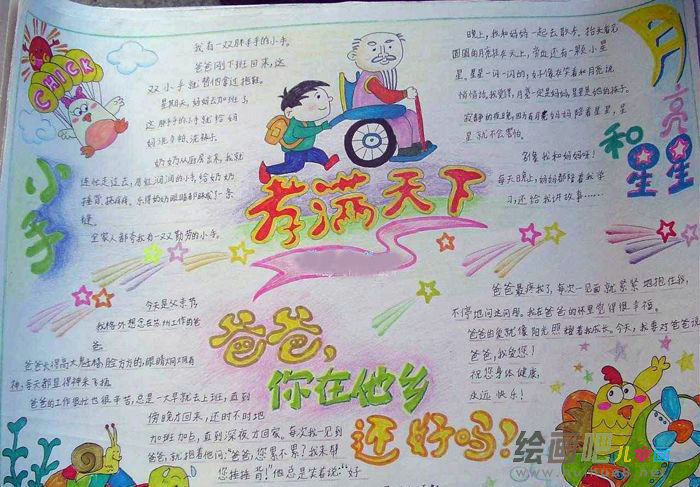 CHICK
小手
我有一双胖乎乎的小手。
爸爸刚下班回来,这
双小手就替他拿过拖鞋。
星期天,妈妈去加班了
这胖乎乎小手就给妈
妈洗伞晾洗袜子。
奶奶从厨房出来,我就
连忙走过去,用红润润的小手给奶奶
捶背揉揉疼。乐得奶奶眼睛都眯成了一条
缝。
全家人都夸我有一双勤劳的小手。
孝满天下
月亮和星星
晚上,我和妈妈一起去散步。抬头看见
圆圆的月亮挂在天上,旁边还有一颗小星
星。星星一闪一闪的,好像在笑着和月亮说
悄悄话。我觉得,月亮一定是妈妈,星星是她的孩子。
寂静的夜晚,因为有月亮妈妈陪着星星,星
星就不会害怕。
多像我和妈妈呀!
每天晚上,妈妈都陪着我学
习,还给我讲故事……
爸爸,
你在他乡
还好吗!
今天是父亲节
我格外想念在苏州工作的爸
爸
爸爸长得高大魁梧,脸方方的,眼睛炯炯有
神,每天都显得神采飞扬
爸爸的工作繁忙也很辛苦,总是一大早就去上班,直到
傍晚才回来,还时不时地
加班加点,直到深夜才回家。每次我一见到
爸爸,就抱着他问:“爸爸,您累不累?我来帮
您捶捶背!”但总是笑着说:“好
爸爸最疼我了,每次一见面就紧紧地抱住我,
不停地问这问那。我在爸爸的怀里觉得很幸福。
爸爸的爱就像阳光照耀着我成长。今天,我要对爸爸说
爸爸,我爱您!
祝您身体健康,
永远快乐!
绘画吧儿童画